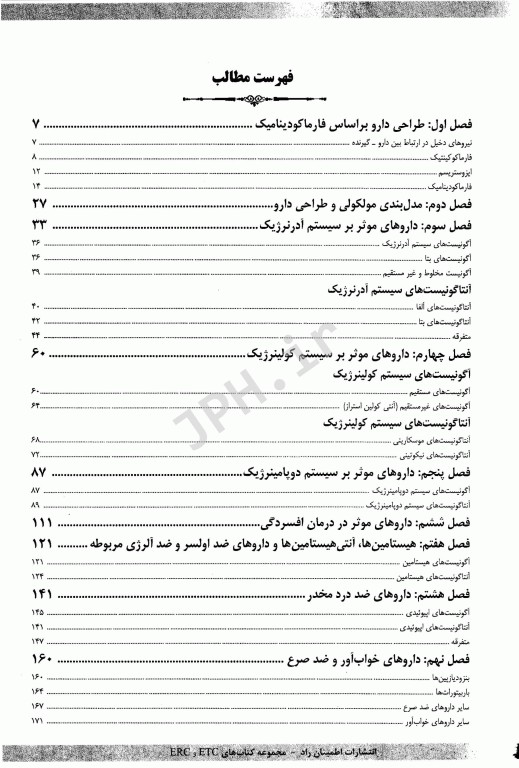 فهرست مطالب
فصل اول: طراحی دارو براساس فارماکودینامیک ۷
نیروهای دخیل در ارتباط بین دارو - گیرنده ۷
فارماکوکینتیک ۸
ایزوستریسم ۱۲
فارماکودینامیک ۱۴
فصل دوم: مدل‌بندی مولکولی و طراحی دارو ۲۷
فصل سوم: داروهای موثر بر سیستم آدرنرژیک ۳۳
آگونیست‌های سیستم آدرنرژیک ۳۶
آگونیست‌های بتا ۳۶
آگونیست مخلوط و غیر مستقیم ۳۹
آنتاگونیست‌های سیستم آدرنرژیک
آنتاگونیست‌های آلفا ۴۰
آنتاگونیست‌های بتا ۴۲
متفرقه ۴۴
فصل چهارم: داروهای موثر بر سیستم کولینرژیک ۶۰
آگونیست‌های سیستم کولینرژیک
آگونیست‌های مستقیم ۶۰
آگونیست‌های غیرمستقیم (آنتی کولین استراز) ۶۴
آنتاگونیست‌های سیستم کولینرژیک
آنتاگونیست‌های موسکارینی ۶۸
آنتاگونیست‌های نیکوتینی ۷۲
فصل پنجم: داروهای موثر بر سیستم دوپامینرژیک ۸۷
آگونیست‌های سیستم دوپامینرژیک ۸۷
آنتاگونیست‌های سیستم دوپامینرژیک ۸۹
فصل ششم: داروهای موثر در درمان افسردگی ۱۱۱
فصل هفتم: هیستامین‌ها، آنتی‌هیستامین‌ها و داروهای ضد اولسر و ضد آلرژی مربوطه ۱۲۱
آگونیست‌های هیستامین ۱۲۱
آنتاگونیست‌های هیستامین ۱۲۴
فصل هشتم: داروهای ضد درد مخدر ۱۴۱
آگونیست‌های اپیوئیدی ۱۴۵
آنتاگونیست‌های اپیوئیدی ۱۴۱
متفرقه ۱۴۷
فصل نهم: داروهای خواب‌آور و ضد صرع ۱۶۰
بنزودیازپین‌ها ۱۶۰
باربیتورات‌ها ۱۶۴
سایر داروهای ضد صرع ۱۶۷
سایر داروهای خواب‌آور ۱۷۱
انتشارات اطمینان راد - مجموعه کتاب‌های ETC و ERC
JPH.ir